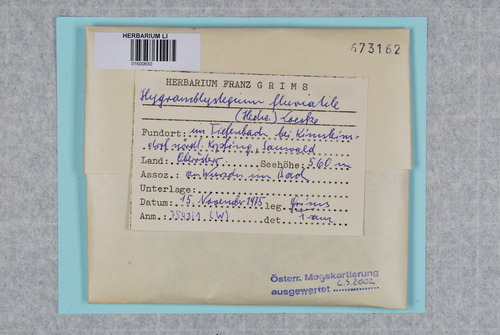 HERBARIUM LI
01600650
673162
HERBARIUM FRANZ GRIMS
Hygroamblystegium fluviatile
(Hedw.) Loeske
Fundort: im Tiefenbach bei
dorf nördl. Kopfing, Sauwald
Land: Oberöster. Seehöhe: 560 m
Assoz.: an Wurzeln im Bach
Unterlage:
Datum: 15. November 1975 leg. Grims
Anm.: 7549/1 (W) det.
Österr. Mooskartierung
ausgewertet 2.5.2002